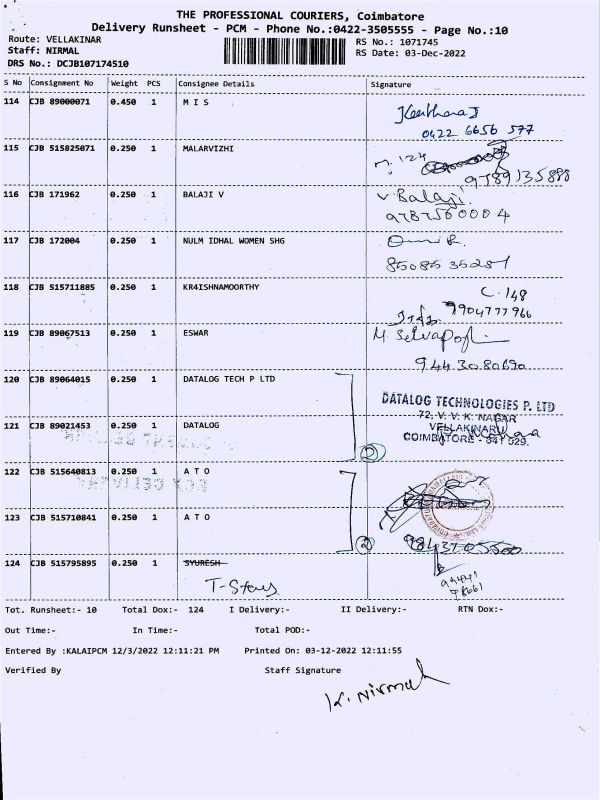 THE PROFESSIONAL COURIERS, Coimbatore
Delivery Runsheet - PCM - Phone No.:0422-3505555 - Page No.:10
Route: VELLAKINAR
RS No.: 1071745
Staff: NIRMAL
RS Date: 03-Dec-2022
DRS No.: DCJB107174510
S No Consignment No Weight PCS Consignee Details Signature
114 CJB 89000071 0.450 1 M I S
Keerthana J
0422 6656 577
115 CJB 515825071 0.250 1 MALARVIZHI
9789135898
116 CJB 171962 0.250 1 BALAJI V
V. Balaji
117 CJB 172004 0.250 1 NULM IDHAL WOMEN SHG
85085 35281
118 CJB 515711885 0.250 1 KR4ISHNAMOORTHY
C. 148
9904777966
119 CJB 89067513 0.250 1 ESWAR
120 CJB 89064015 0.250 1 DATALOG TECH P LTD
DATALOG TECHNOLOGIES P. LTD
72, V. V. K. NAGAR
121 CJB 89021453 0.250 1 DATALOG
VELLAKINARU
COIMBATORE - 641 029.
2
122 CJB 515640813 0.250 1 A T O
123 CJB 515710841 0.250 1 A T O
2
124 CJB 515795895 0.250 1 SYURESH
T-Stays
Tot. Runsheet:- 10 Total Dox:- 124 I Delivery:- II Delivery:- RTN Dox:-
Out Time:- In Time:- Total POD:-
Entered By :KALAIPCM 12/3/2022 12:11:21 PM Printed On: 03-12-2022 12:11:55
Verified By Staff Signature
K. Nirmal